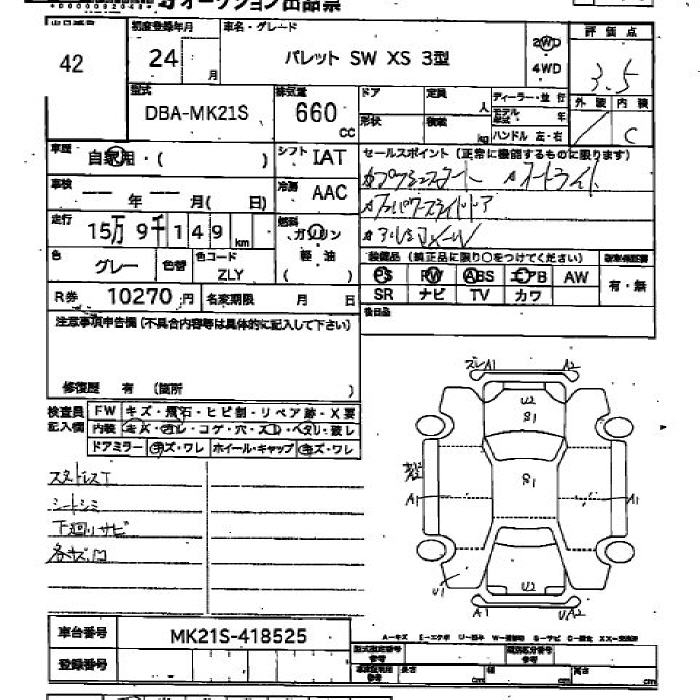 オークション出品票
42
初度登録年月
24 月
車名・グレード
パレット SW XS 3型
2WD
4WD
評価点
3.5
外装 内装
C
型式
DBA-MK21S
排気量
660 CC
ドア
定員
人
形状
積載
kg
ディーラー・並行
モデル
年
ハンドル 左・右
車歴
自家用・( )
シフト IAT
車検
年 月( 日)
冷房 AAC
セールスポイント(正常に機能するものに限ります)
プッシュスタート オートライト
パワースライドドア
アルミホイール
走行
15万 9千 149 km
燃料
ガソリン
軽油
( )
色
グレー
色替
色コード
ZLY
装備品 (純正品に限り○をつけてください)
PS PW ABS エアB AW
SR ナビ TV カワ
有・無
後日品
R券 10270円
名変期限 月 日
注意事項申告欄(不具合内容等は具体的に記入して下さい)
修復歴 有 (箇所 )
検査員記入欄
FW キズ・飛石・ヒビ割・リペア跡・X要
内装 キズ・汚レ・コゲ・穴・スレ・ヘタリ・破レ
ドアミラー キズ・ワレ ホイール・キャップ キズ・ワレ
スタッドレスT
シートシミ
下廻りサビ
各キズ凹
ズレ A1 A2
U2
S1
S1
A1 A1
U1 U2
A1 UA2
車台番号 MK21S-418525
登録番号
型式指定番号
類別区分番号
参考
長さ cm 幅 cm 高さ cm